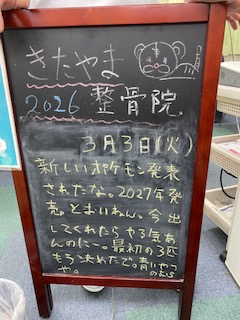 きたやま
2026 整骨院
3月3日(火)
新しいポケモン発表
されたな。2027年発
売。とおいねん。今出
してくれたらやる気あ
んのにー。最初の3匹
もう決めたで。青いやつ
やな。